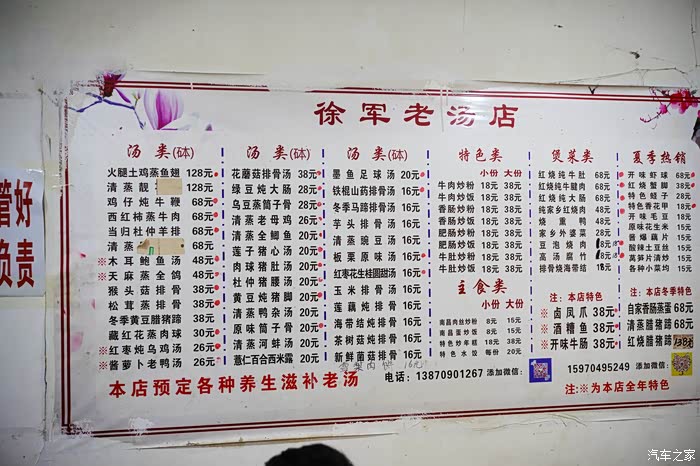 管好
负责
徐军老汤店
汤 类(砵)
火腿土鸡蒸鱼翅 128元
清 蒸 靓 128元
鸡 仔 炖 牛 鞭 68元
西 红 柿 蒸 牛 肉 68元
当 归 杜 仲 羊 排 68元
清 蒸 68元
※木 耳 鲍 鱼 汤 48元
※天 麻 蒸 全 鸽 48元
猴 头 菇 排 骨 38元
松 茸 蒸 排 骨 38元
冬季黄豆腊猪蹄 38元
藏 红 花 蒸 肉球 30元
※红 枣 炖 乌 鸡 汤 26元
※酱 萝 卜 老 鸭 汤 26元
汤 类(砵)
花蘑菇排骨汤 38元
绿 豆 炖 大 肠 28元
乌豆蒸筒子骨 28元
清 蒸 老 母 鸡 26元
清 蒸 全 鲫 鱼 20元
莲 子 猪 心 汤 20元
肉 球 猪 肚 汤 20元
杜 仲 猪 腰 汤 20元
黄 豆 炖 猪 脚 20元
清 蒸 鸭 杂 汤 20元
原 味 筒 子 骨 20元
清 蒸 河 蚌 汤 20元
薏仁百合西米露 20元
汤 类(砵)
墨 鱼 足 球 汤 20元
铁棍山药排骨汤 16元
冬季马蹄排骨汤 16元
芋 头 排 骨 汤 16元
清 蒸 豌 豆 汤 16元
板 栗 原 味 汤 16元
红枣花生桂圆甜汤 16元
玉 米 排 骨 汤 16元
莲 藕 炖 排 骨 16元
海 带 结 炖 排 骨 16元
茶 树 菇 炖 排 骨 16元
新 鲜 菌 菇 排 骨 16元
16元
特 色 类
小份 大份
牛 肉 炒 粉 18元 38元
牛 肉 炒 饭 18元 38元
香 肠 炒 粉 18元 38元
香 肠 炒 饭 18元 38元
肥 肠 炒 粉 18元 38元
肥 肠 炒 饭 18元 38元
牛 肚 炒 粉 18元 38元
牛 肚 炒 饭 18元 38元
主 食 类
小份 大份
南昌肉丝炒粉 8元 15元
南 昌 蛋 炒 饭 8元 15元
特 色 炒 年 糕 18元 38元
特 色 水 饺 每份 20元
煲 菜 类
红 烧 纯 牛 肚 68元
红烧纯牛腱肉 68元
红 烧 炖 大 肠 68元
纯家乡红烧肉 48元
烧 熏 鸭 48元
家 乡 外 婆 菜 28元
豆 泡 烧 肉 8元
高 汤 腐 竹 8元
排骨烧海带结 18元
注：本店特色
※卤 凤 爪 38元
※酒 糟 鱼 38元
※开味牛肠 38元
夏季热销
开 味 虾 球 68元
红 烧 蟹 脚 38元
特 色 蛏 子 28元
特 色 香 花 甲 18元
开 味 毛 豆 18元
原味花生米 15元
酱 爆 藕 片 15元
酸辣土豆丝 15元
莴笋片清炒 15元
各种小菜均 15元
注：本店冬季特色
自家香肠蒸蛋 68元
清蒸腊猪蹄 138元
红烧腊猪蹄 138元
本店预定各种养生滋补老汤
电话：13870901267 添加微信：
15970495249 添加微信：
注:※为本店全年特色
汽车之家